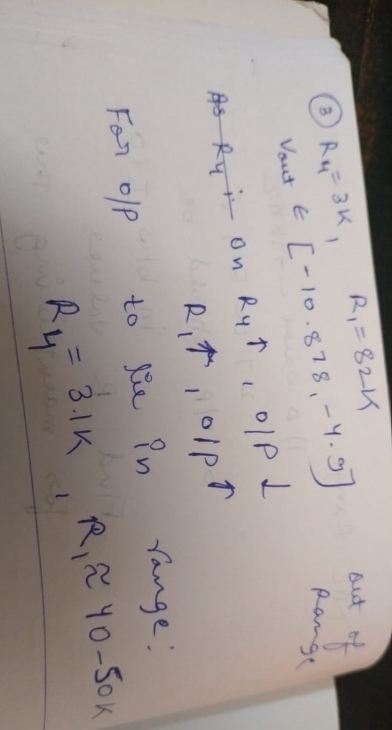 ③ R4 = 3K, R1 = 82K
Vout ∈ [-10.878, -4.9] out of Range
As R4 on R4↑, o/p ↓
R1↑, o/p↑
For o/p to lie in range:
R4 = 3.1K, R1 ≈ 40-50K